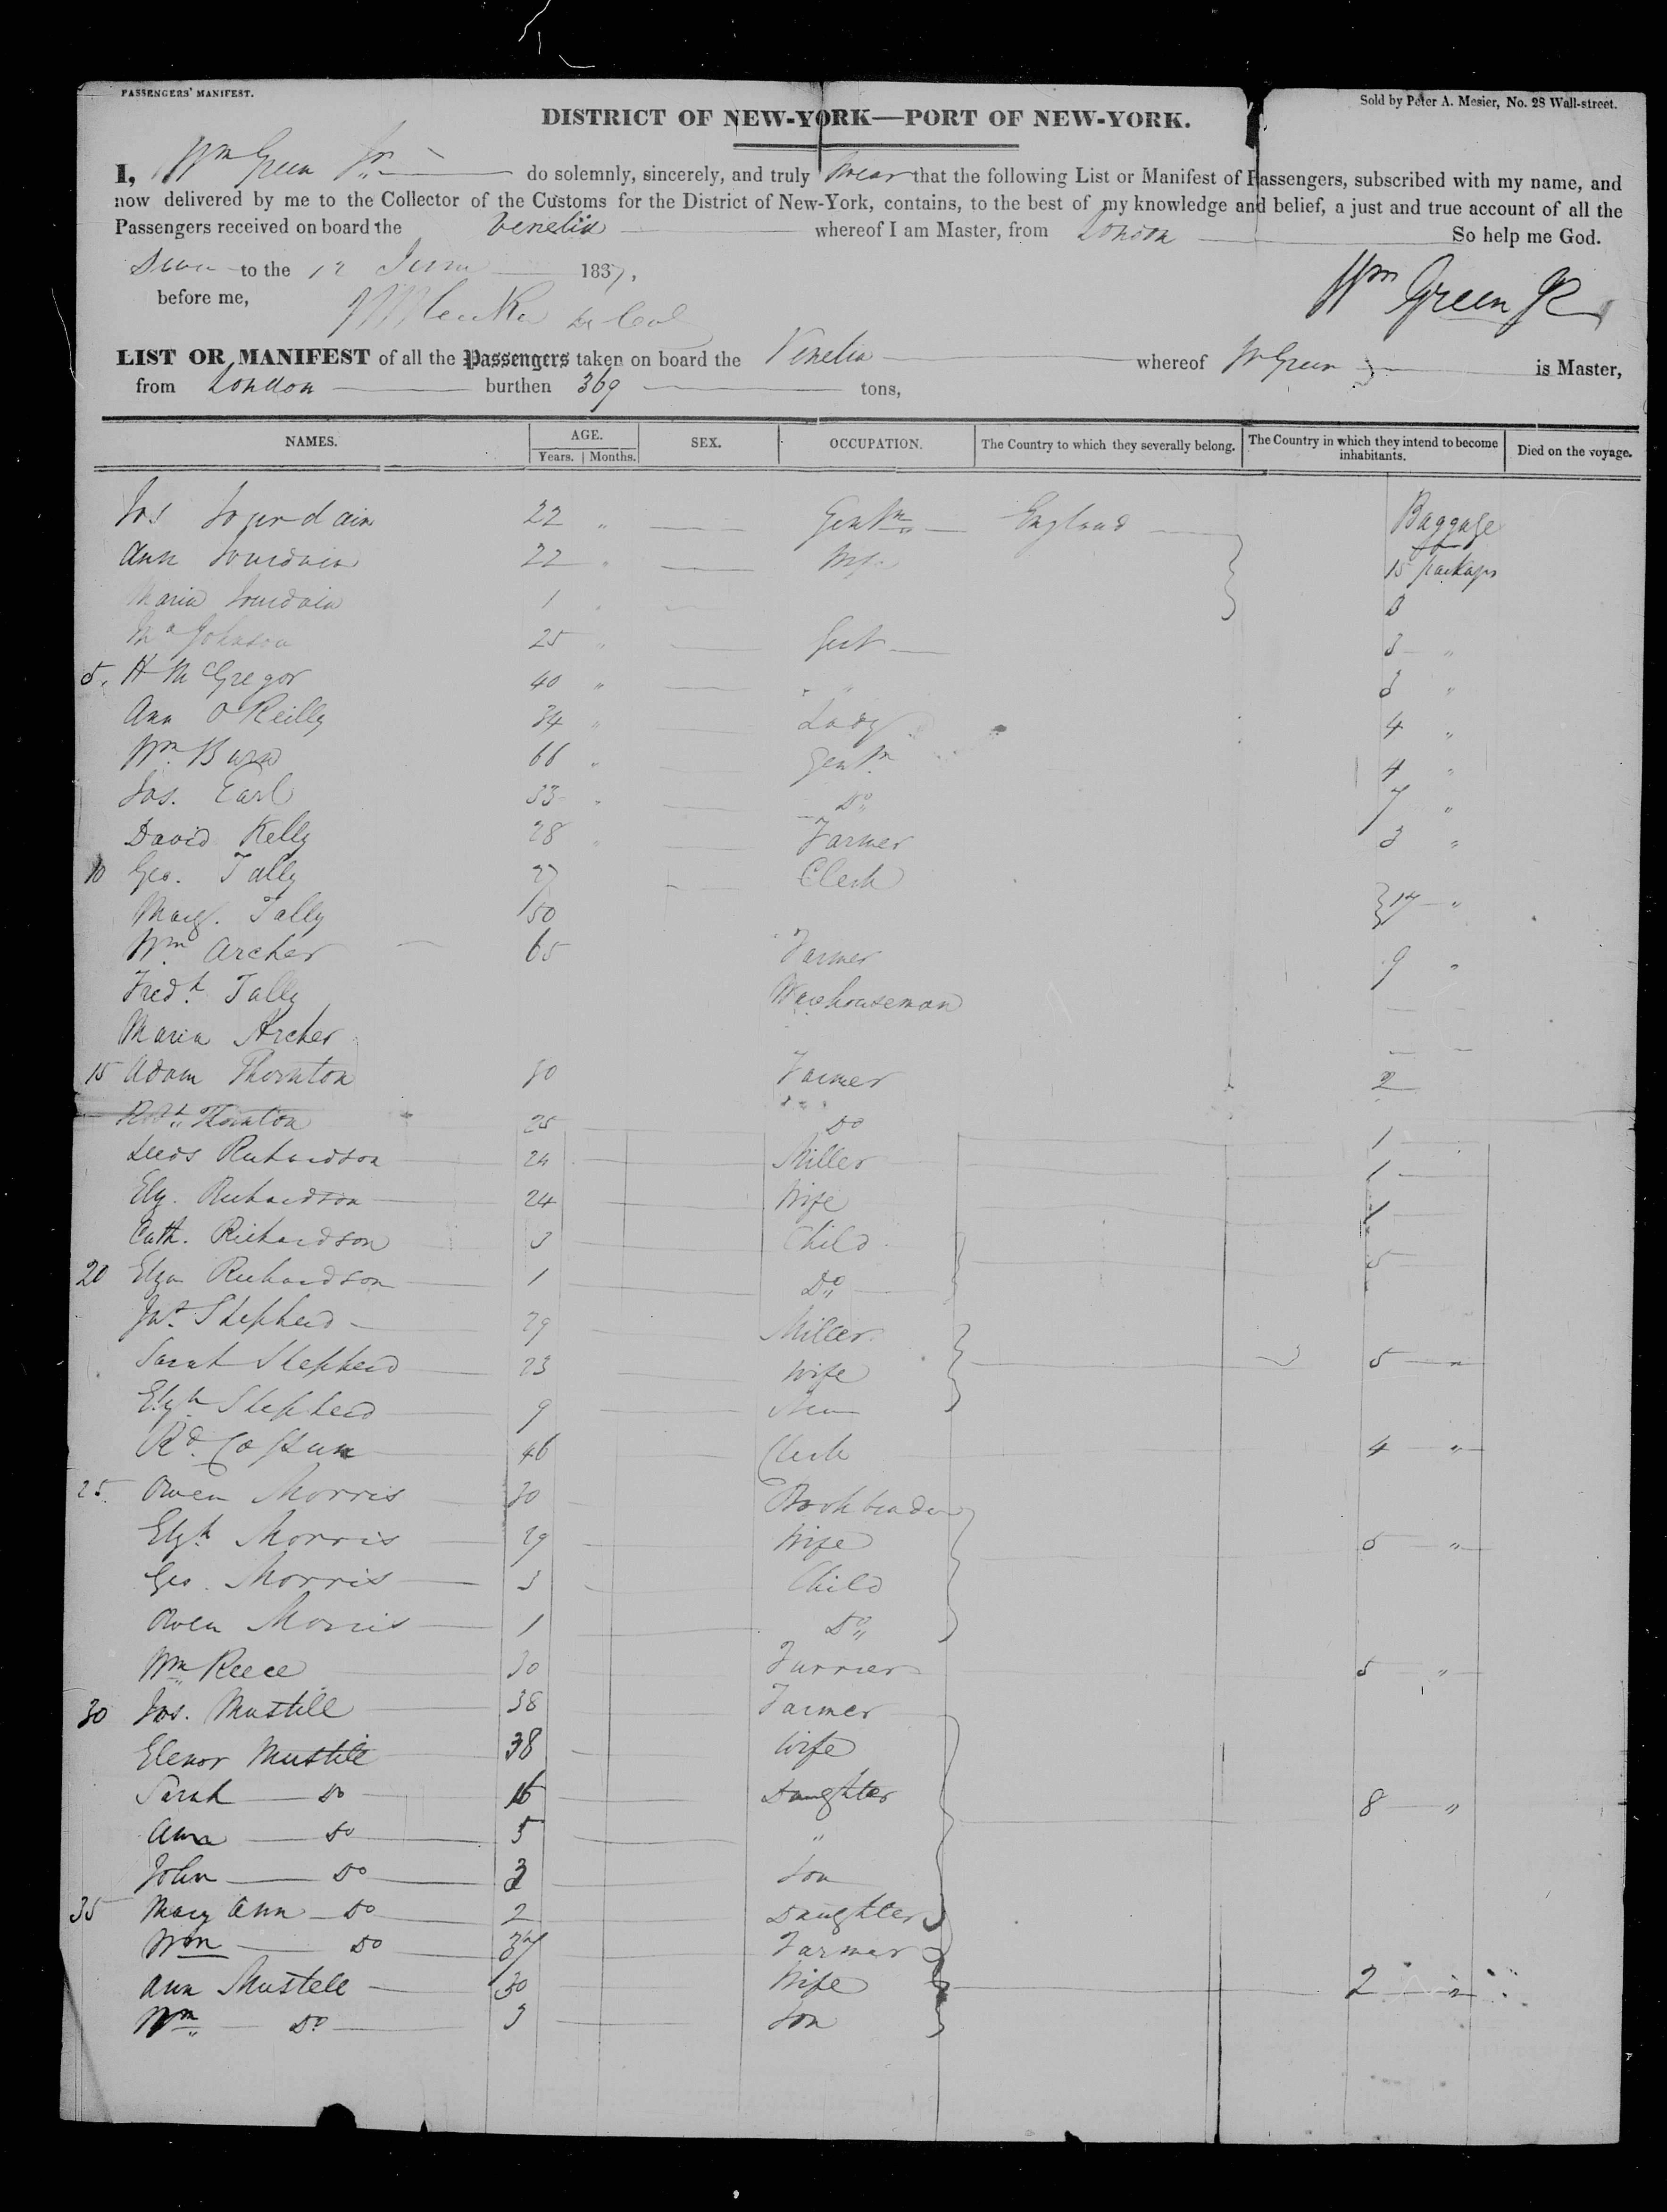 PASSENGERS' MANIFEST.
Sold by Peter A. Mesier, No. 28 Wall-street.
DISTRICT OF NEW-YORK—PORT OF NEW-YORK.
I, Wm Green Jr. do solemnly, sincerely, and truly swear that the following List or Manifest of Passengers, subscribed with my name, and
now delivered by me to the Collector of the Customs for the District of New-York, contains, to the best of my knowledge and belief, a just and true account of all the
Passengers received on board the Venelia whereof I am Master, from London So help me God.
to the 12 June 1837,
before me,
Wm Green Jr
LIST OR MANIFEST of all the Passengers taken on board the Venelia whereof W Green is Master,
from London burthen 369 tons,
NAMES. AGE. SEX. OCCUPATION. The Country to which they severally belong. The Country in which they intend to become inhabitants. Died on the voyage.
Years. Months.
Jos Jourdain 22 " Gentm England Baggage
Ann Jourdain 22 " 15 packages
Maria Jourdain 1 "
Johnson 25 " Gent 3 "
5. H McGregor 40 " " 3 "
Ann O'Reilly 34 " Lady 4 "
Wm. 66 " Gentm 4 "
Jas. Earl 33 " Do 7 "
David Kelly 28 " Farmer 3 "
10 Geo. Tally 27 Clerk
Marg. Tally 50 17 "
Wm. Archer 65 Farmer 9 "
Fredk. Tally Warehouseman
Maria Archer
15 Adam Thornton 30 Farmer 2
Robt. Thornton 25 Do 1
Richardson 24 Miller 1
Elz. Richardson 24 Wife 1
Cath. Richardson 3 Child 5
20 Elza Richardson 1 Do
Shepherd 29 Miller
Sarah Shepherd 23 Wife 5 "
Elzh Shepherd 9
Rd. 46 Clerk 4 "
25. Owen Morris 30 Bookbinder
Elzh. Morris 29 Wife 5 "
Geo. Morris 3 Child
Owen Morris 1 Do
Wm Reece 30 Furrier 5 "
30 Jas. Mustill 38 Farmer
Elenor Mustill 38 Wife
Sarah Do 16 Daughter 8 "
Ann Do 5 "
John Do 3 Son
35 Mary Ann Do 2 Daughter
Wm Do 37 Farmer
Ann Mustell 30 Wife 2 "
Wm Do 3 Son